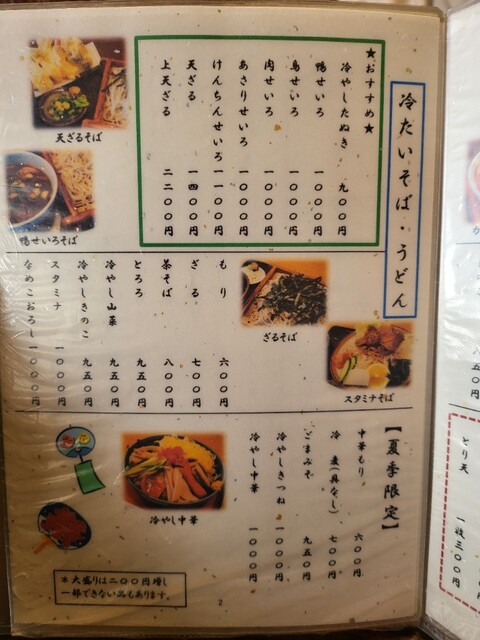 冷たいそば・うどん
★おすすめ★
冷やしたぬき 九〇〇円
鴨せいろ 一〇〇〇円
鳥せいろ 一〇〇〇円
肉せいろ 一〇〇〇円
あさりせいろ 一〇〇〇円
けんちんせいろ 一一〇〇円
天ざる 一四〇〇円
上天ざる 二二〇〇円
天ざるそば
鴨せいろそば
ざるそば
スタミナそば
もり 六〇〇円
ざる 七〇〇円
茶そば 八〇〇円
とろろ 九五〇円
冷やし山菜 九五〇円
冷やしきのこ 九五〇円
スタミナ 一〇〇〇円
なめこおろし 一〇〇〇円
【夏季限定】
中華もり 六〇〇円
冷麦(具なし) 七〇〇円
ごまみそ 九五〇円
冷やしきつね 一〇〇〇円
冷やし中華 一〇〇〇円
冷やし中華
*大盛りは二〇〇円増し
一部できない品もあります。
2
とり天 一枚三〇〇円